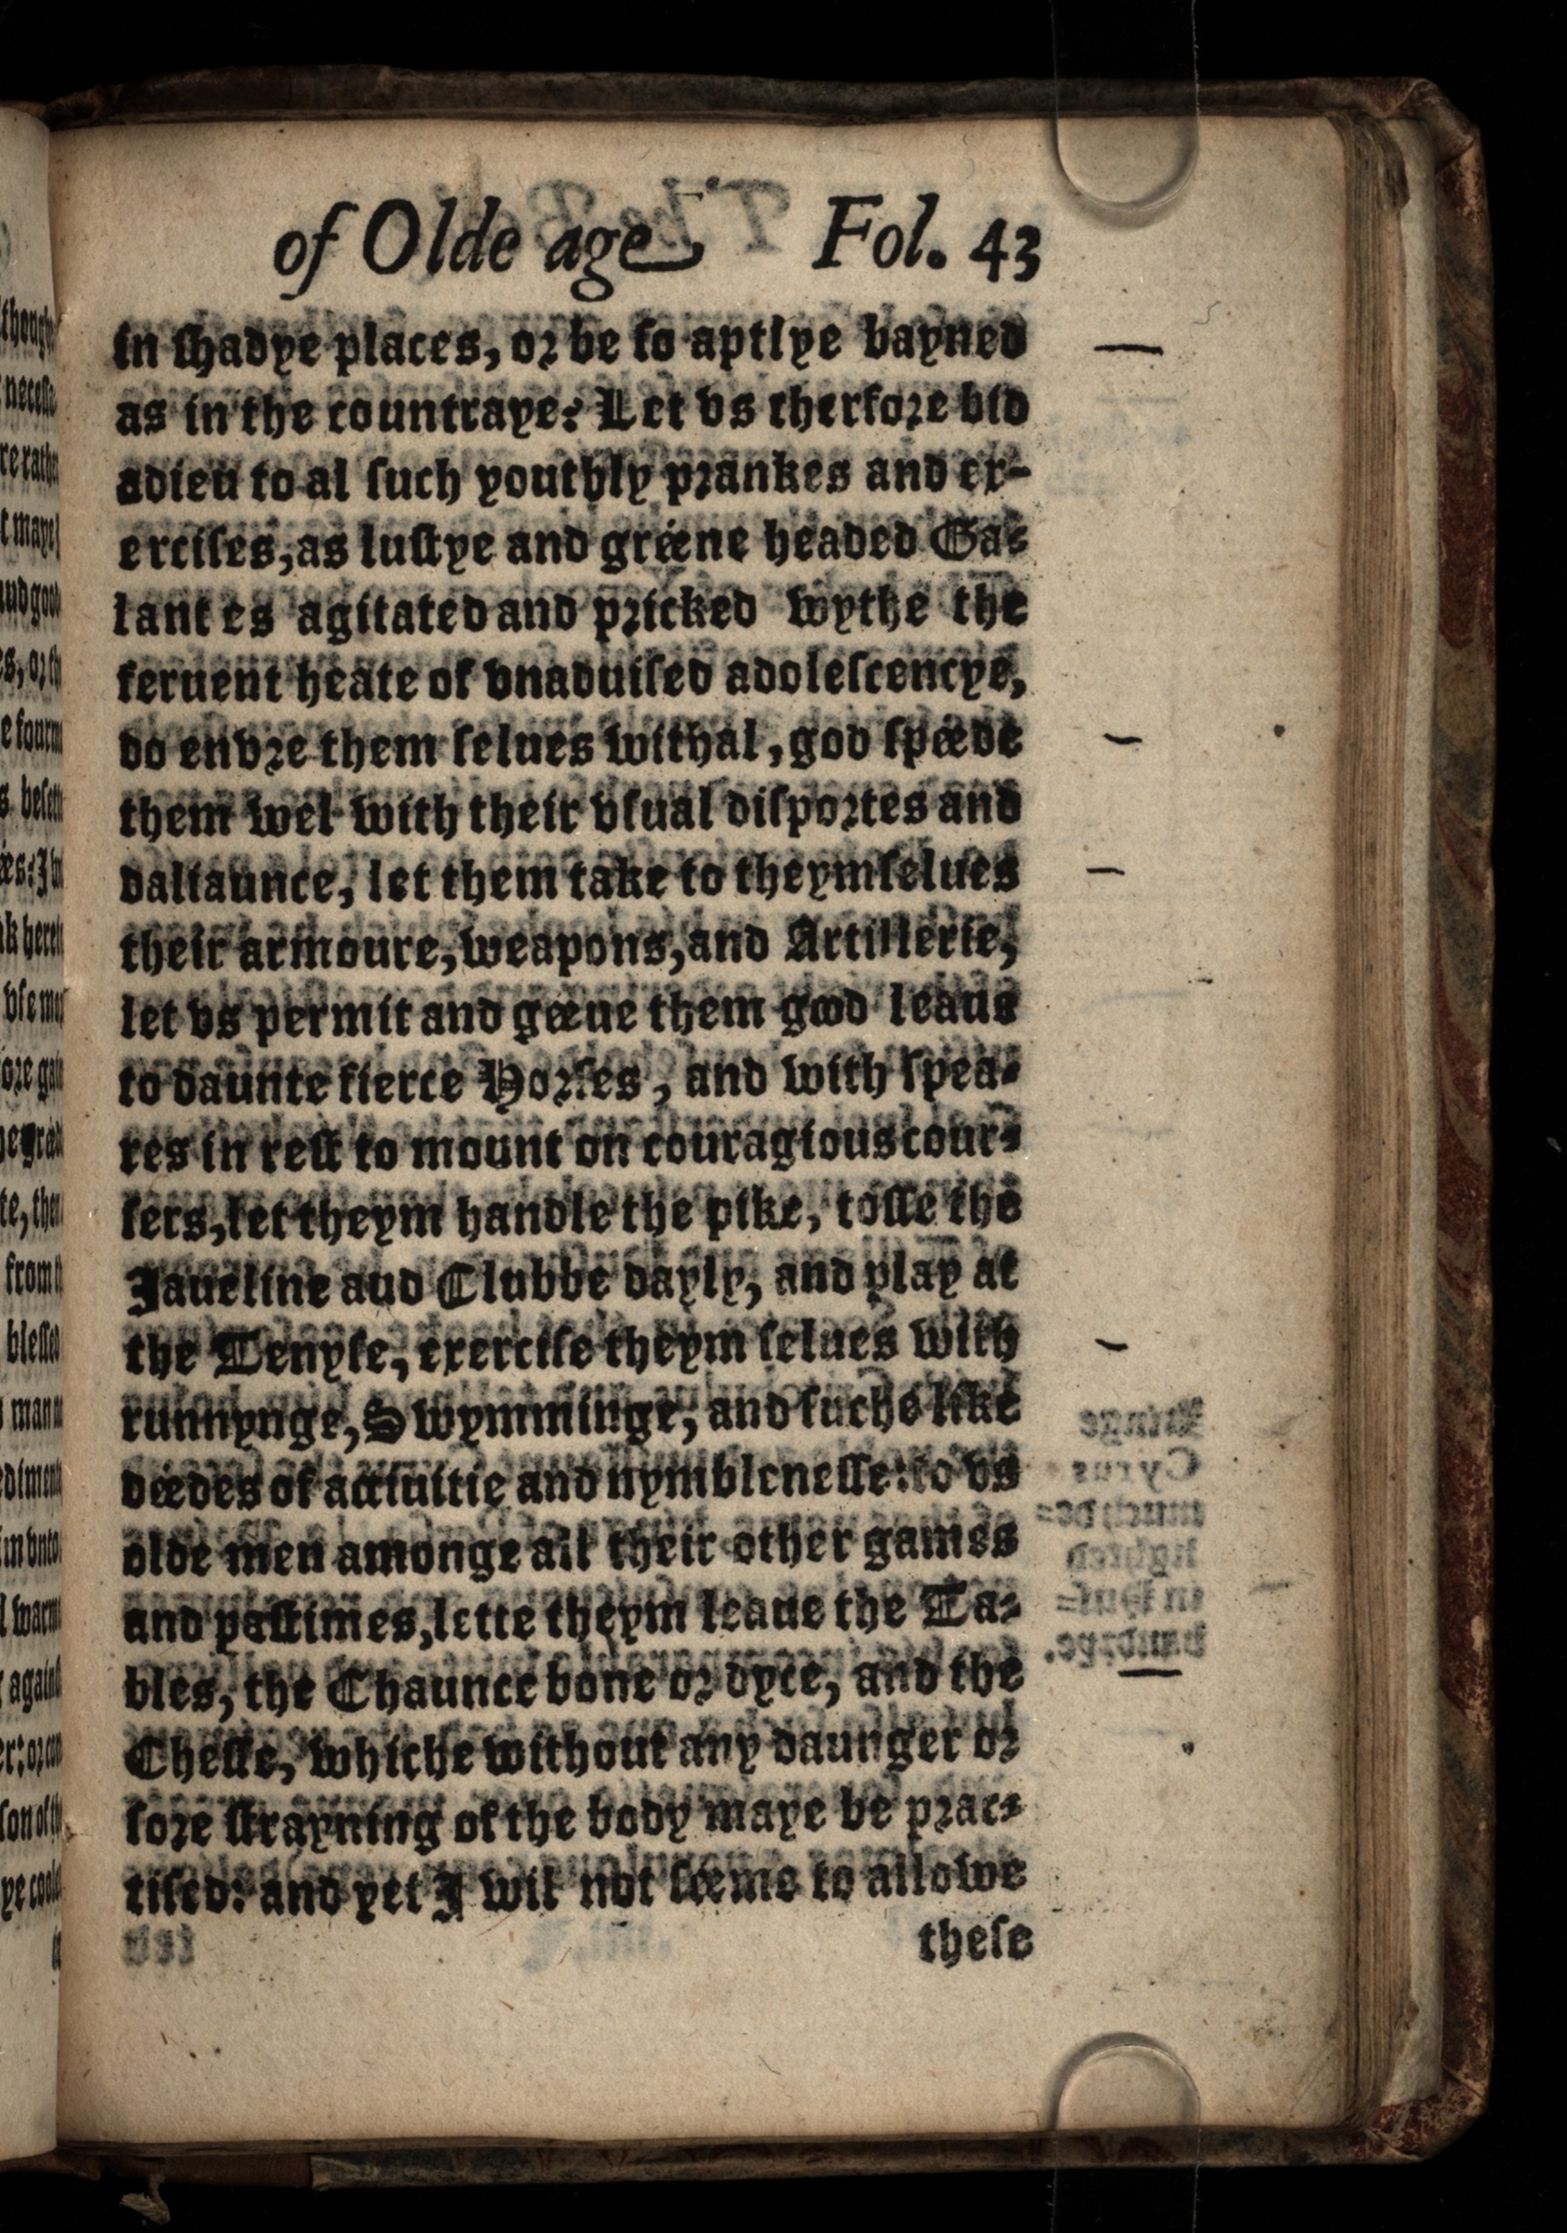 of Olde age Fol. 43
in ſhadye places, or be ſo aptlye bayned
as in the countraye? Let vs therfore bid
adieu to al ſuch youthly prankes and ex-
erciſes, as luſtye and gréene headed Ga-
lantes agitated and pricked wythe the
feruent heate of vnaduiſed adoleſcencye,
do envre them ſelues withal, god ſpéede
them wel with their vſual diſportes and
daliaunce, let them take to theymſelues
their armoure, weapons, and Artillerie,
let vs permit and géeue them good leaue
to daunte fierce Horſes, and with ſpea-
res in reſt to mount on couragious cour-
ſers, let theym handle the pike, toſſe the
Iaueline aud Clubbe dayly, and play at
the Tenyſe, exerciſe theym ſelues with
runnynge, Swymminge, and ſuche like
déedes of actiuitie and nymbleneſſe: to vs
olde men amonge all their other games
and paſtimes, lette theym leaue the Ta-
bles, the Chaunce bone or dyce, and the
Cheſſe, whiche without any daunger or
ſore ſtrayning of the body maye be prac-
tiſed: and yet I wil not ſéeme to allowe
theſe